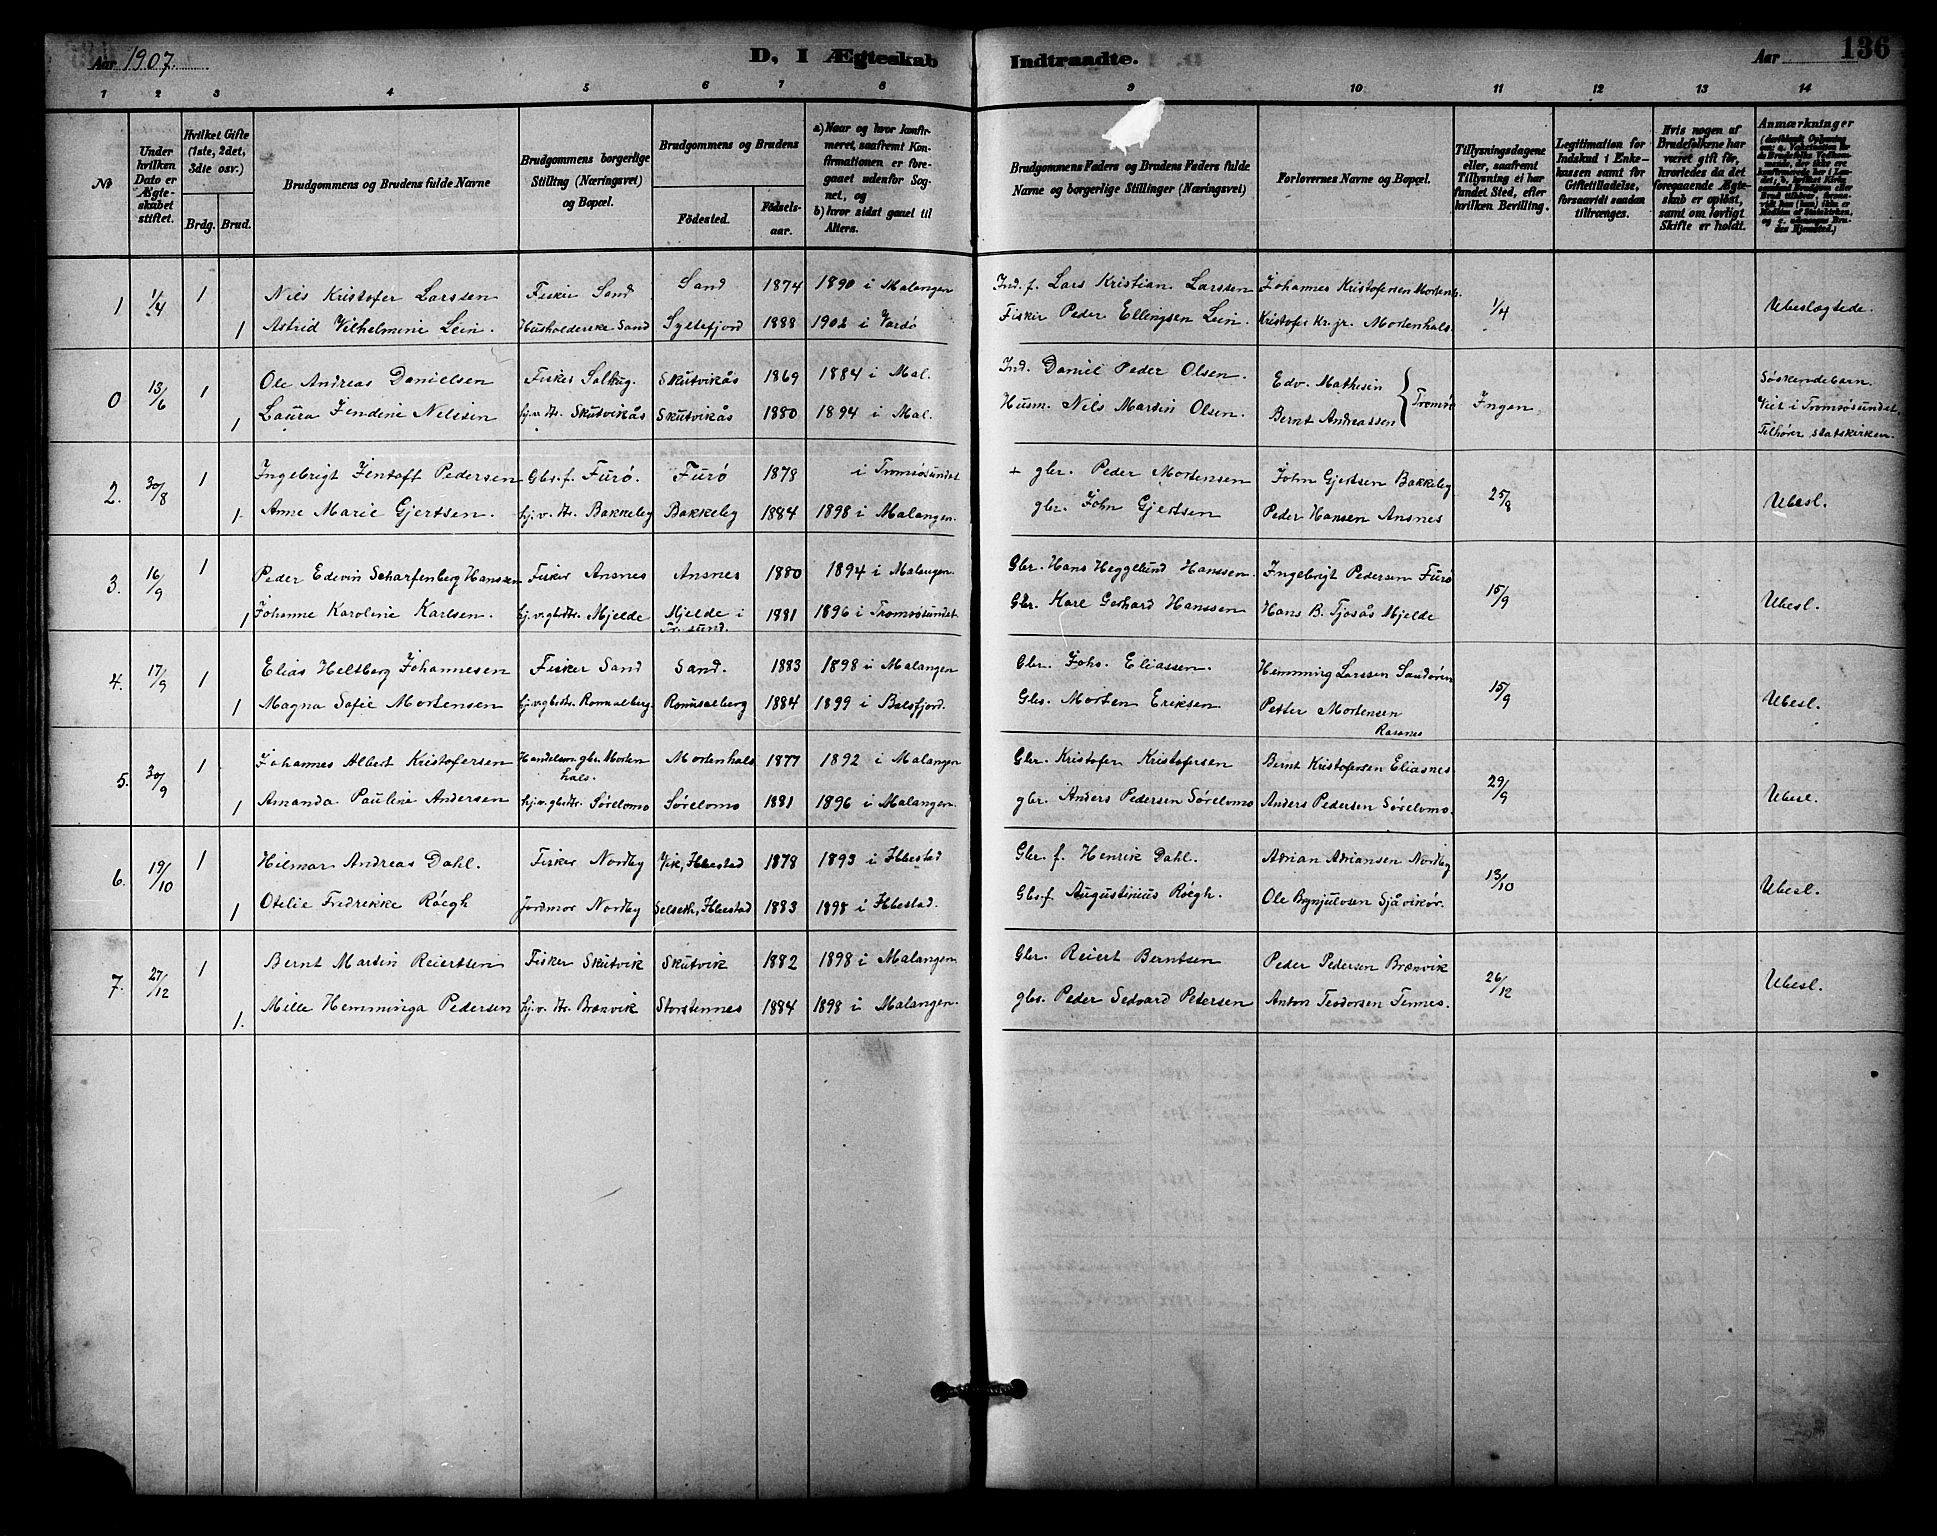 Aar 1907.
D, I Ægteskab Indtraadte.
Aar
136
1 2 3 4 5 6 7 8 9 10 11 12 13 14
No
Under hvilken Dato er Ægteskabet stiftet.
Hvilket Gifte (1ste, 2det, 3die osv.)
Brdg. Brud.
Brudgommens og Brudens fulde Navne
Brudgommens borgerlige Stilling (Næringsvei) og Bopæl.
Brudgommens og Brudens
Födested. Födselsaar.
a) Naar og hvor konfirmeret, saafremt Konfirmationen er foregaaet udenfor Sognet, og
b) hvor sidst gaaet til Alters.
Brudgommens Faders og Brudens Faders fulde Navne og borgerlige Stillinger (Næringsvei)
Forlovernes Navne og Bopæl.
Tillysningsdagene eller, saafremt Tillysning ei har fundet Sted, efter hvilken Bevilling.
Legitimation for Indskud i Enkekassen samt for Giftetilladelse, forsaavidt saadan tiltrænges.
Hvis nogen af Brudefolkene har været gift før, hvorledes da det foregaaende Ægteskab er opløst, samt om lovligt Skifte er holdt.
Anmærkninger
1 1/4 1 Nils Kristofer Larssen Fisker Sand Sand 1874 1890 i Malangen Ind. f. Lars Kristian Larssen Johannes Kristofersen Mortenh. 1/4 Ubeslægtede.
1 Astrid Vilhelmine Lein. Husholderske Sand Syltefjord 1888 1902 i Vardö Fisker Peder Ellingsen Lein. Kristofer Kr. jr. Mortenhals
0 13/6 1 Ole Andreas Danielsen Fisker Skutvikås 1869 1884 i Mal. Ind. Daniel Peder Olsen. Edv. Mathesin Tromsö Ingen. Søskendebarn.
1 Laura Jendine Nelssen hj.v. dtr. Skutvikås Skutvikås 1880 1894 i Mal. Husm. Nils Martin Olsen. Bernt Andreassen Viet i Tromsøsundet.
Tilhører statskirken.
2. 30/8 1 Ingebrigt Jentoft Pedersen Gbr. f. Furö Furö 1878 i Tromsøsundet + gbr. Peder Mortensen John Gjertsen Bakkeby 25/8 Ubesl.
1. Anne Marie Gjertsen. hj.v. dtr. Bakkeby Bakkeby 1884 1898 i Malangen. gbr. John Gjertsen Peder Hansen Ansnes
3. 16/9 1 Peder Edevin Scharfenberg Hanssen Fisker Ansnes Ansnes 1880 1894 i Malangen. Gbr. Hans Heggelund Hanssen. Ingebrigt Pedersen Furö 15/9 Ubesl.
1 Johanne Karoline Karlsen. hj.v. gbrdtr. Mjelde Mjelde i Tr.sund. 1881 1896 i Tromsøsundet Gbr. Karl Gerhard Hanssen Hans B. Tjosås Mjelde
4. 17/9 1 Elias Heltberg Johannesen Fisker Sand Sand. 1883 1898 i Malangen Gbr. Johs. Eliassen. Hemming Larssen Sandören 15/9 Ubesl.
1 Magna Sofie Mortensen hj.v. gbrdtr. Romsalberg Romsalberg 1884 1899 i Balsfjord. Gbr. Morten Eriksen Petter Mortensen
5. 30/9 1 Johannes Albert Kristofersen Handelsm gbr. Mortenhals. Mortenhals 1877 1892 i Malangen Gbr. Kristofer Kristofersen Bernt Kristofersen Eliasnes 29/9 Ubesl.
1 Amanda Pauline Andersen hj.v. gbrdtr. Sørelvmo Sørelvmo 1881 1896 i Malangen. gbr. Anders Pedersen Sørelvmo Anders Pedersen Sørelvmo.
6. 19/10 1 Hilmar Andreas Dahl. Fisker Nordby Vik, Ibbestad 1878 1893 i Ibbestad Gbr. f. Henrik Dahl. Adrian Adriansen Nordby 13/10 Ubesl.
1 Otelie Fredrikke Röegh Jordmor Nordby Selseth, Ibbestad 1883 1898 i Ibbestad. Gbr. f. Augustinius Röegh. Ole Brynjulvsen
7. 27/12 1 Bernt Martin Reiertsen Fisker Skutvik Skutvik 1882 1898 i Malangen Gbr. Reiert Berntsen Peder Pedersen Brænvik 26/12 Ubesl.
1. Mille Hemminga Pedersen hj.v. dtr. Brænvik Storstennes 1884 1898 i Malangen. gbr. Peder Sedvard Pedersen Anton Teodorsen Tennes.